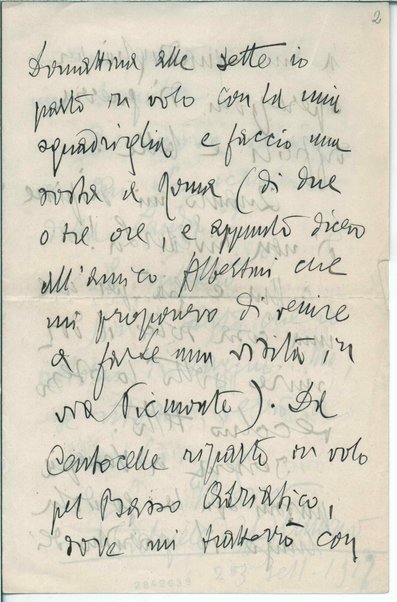 2
Domattina alle sette io
parto in volo con la mia
squadriglia e faccio una
sosta a Roma (di due
o tre ore, e appunto dicevo
all'amico Albertini che
mi proponevo di venire
a fare una visita in
via Piemonte). Da
Centocelle riparto in volo
pel Basso Adriatico,
dove mi tratterrò con
2842639